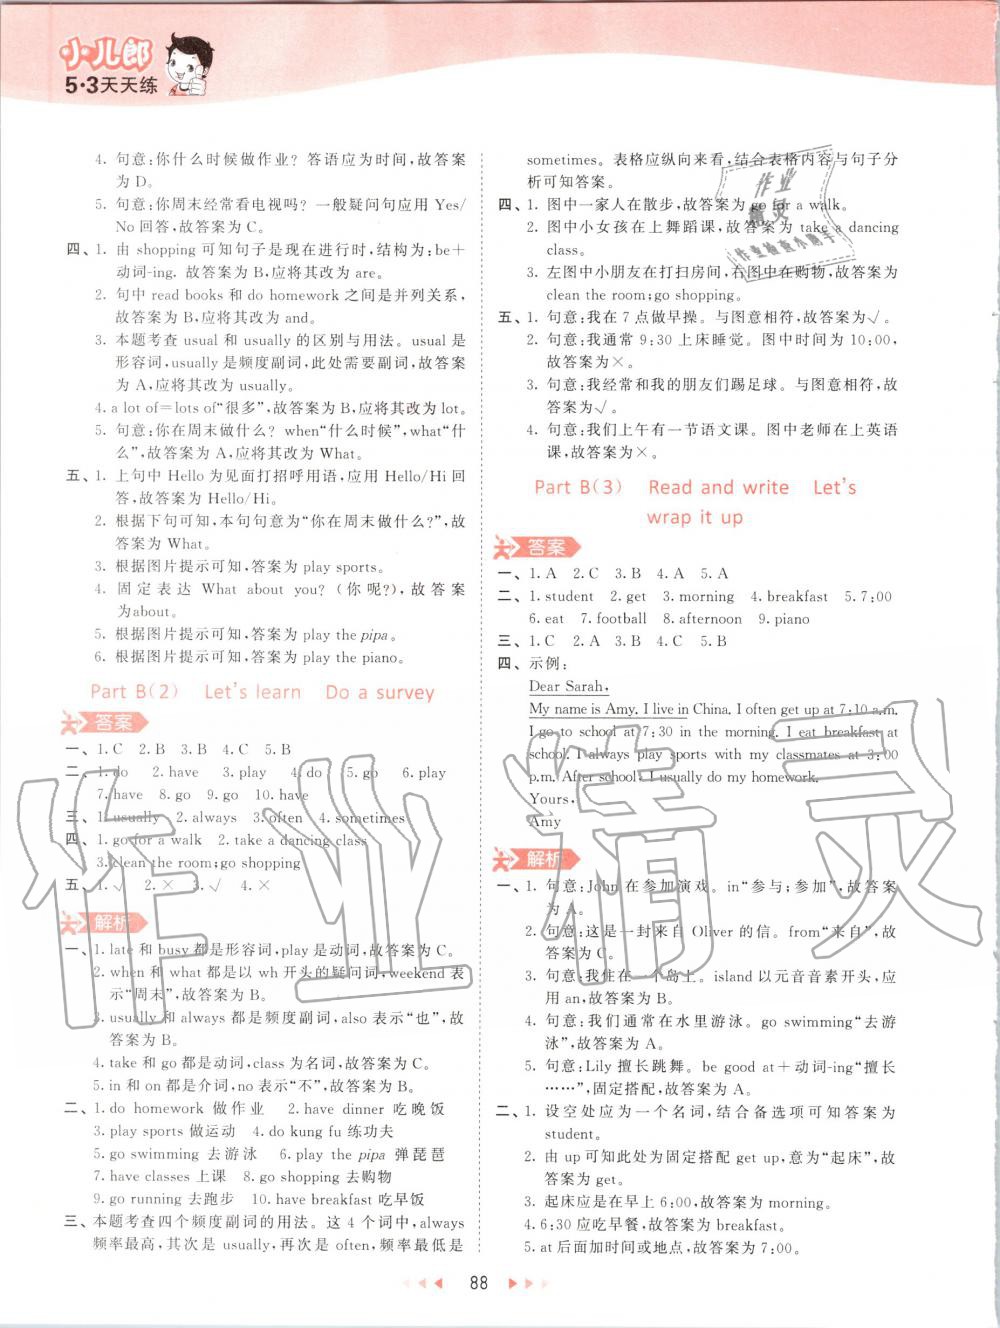 小儿郎
5·3天天练
4. 句意:你什么时候做作业? 答语应为时间,故答案
为 D。
5. 句意:你周末经常看电视吗? 一般疑问句应用 Yes/
No 回答,故答案为 C。
四、1. 由 shopping 可知句子是现在进行时,结构为:be+
动词-ing. 故答案为 B,应将其改为 are。
2. 句中 read books 和 do homework 之间是并列关系,
故答案为 B,应将其改为 and。
3. 本题考查 usual 和 usually 的区别与用法。usual 是
形容词,usually 是频度副词,此处需要副词,故答案
为 A,应将其改为 usually。
4. a lot of=lots of“很多”,故答案为 B,应将其改为 lot。
5. 句意:你在周末做什么? when“什么时候”,what“什
么”,故答案为 A,应将其改为 What。
五、1. 上句中 Hello 为见面打招呼用语,应用 Hello/Hi 回
答,故答案为 Hello/Hi。
2. 根据下句可知,本句句意为“你在周末做什么?”,故
答案为 What。
3. 根据图片提示可知,答案为 play sports。
4. 固定表达 What about you? (你呢?),故答案
为about。
5. 根据图片提示可知,答案为 play the pipa。
6. 根据图片提示可知,答案为 play the piano。
Part B(2) Let's learn Do a survey
答案
一、1. C 2. B 3. B 4. C 5. B
二、1. do 2. have 3. play 4. do 5. go 6. play
7. have 8. go 9. go 10. have
三、1. usually 2. always 3. often 4. sometimes
四、1. go for a walk 2. take a dancing class
3. clean the room;go shopping
五、1. √ 2. × 3. √ 4. ×
解析
一、1. late 和 busy 都是形容词,play 是动词,故答案为 C。
2. when 和 what 都是以 wh 开头的疑问词,weekend 表
示“周末”,故答案为 B。
3. usually 和 always 都是频度副词,also 表示“也”,故
答案为 B。
4. take 和 go 都是动词,class 为名词,故答案为 C。
5. in 和 on 都是介词,no 表示“不”,故答案为 B。
二、1. do homework 做作业 2. have dinner 吃晚饭
3. play sports 做运动 4. do kung fu 练功夫
5. go swimming 去游泳 6. play the pipa 弹琵琶
7. have classes 上课 8. go shopping 去购物
9. go running 去跑步 10. have breakfast 吃早饭
三、本题考查四个频度副词的用法。这 4 个词中,always
频率最高,其次是 usually,再次是 often,频率最低是
sometimes。表格应纵向来看,结合表格内容与句子分
析可知答案。
四、1. 图中一家人在散步,故答案为 go for a walk。
2. 图中小女孩在上舞蹈课,故答案为 take a dancing
class。
3. 左图中小朋友在打扫房间,右图中在购物,故答案为
clean the room;go shopping。
五、1. 句意:我在 7 点做早操。与图意相符,故答案为√。
2. 句意:我通常 9:30 上床睡觉。图中时间为 10:00,
故答案为×。
3. 句意:我经常和我的朋友们踢足球。与图意相符,故
答案为√。
4. 句意:我们上午有一节语文课。图中老师在上英语
课,故答案为×。
Part B(3) Read and write Let's
wrap it up
答案
一、1. A 2. C 3. B 4. A 5. A
二、1. student 2. get 3. morning 4. breakfast 5. 7:00
6. eat 7. football 8. afternoon 9. piano
三、1. C 2. A 3. B 4. C 5. B
四、示例:
Dear Sarah,
My name is Amy. I live in China. I often get up at 7:10 a.m.
I go to school at 7:30 in the morning. I eat breakfast at
school. I always play sports with my classmates at 3:00
p.m. After school, I usually do my homework.
Yours,
Amy
解析
一、1. 句意:John 在参加演戏。in“参与;参加”,故答案
为 A。
2. 句意:这是一封来自 Oliver 的信。from“来自”,故
答案为 C。
3. 句意:我住在一个岛上。island 以元音音素开头,应
用 an,故答案为 B。
4. 句意:我们通常在水里游泳。go swimming“去游
泳”,故答案为 A。
5. 句意:Lily 擅长跳舞。be good at+动词-ing“擅长
……”,固定搭配,故答案为 A。
二、1. 设空处应为一个名词,结合备选项可知答案为
student。
2. 由 up 可知此处为固定搭配 get up,意为“起床”,故
答案为 get。
3. 起床应是在早上 6:00,故答案为 morning。
4. 6:30 应吃早餐,故答案为 breakfast。
5. at 后面加时间或地点,故答案为 7:00。
88
作业
精灵
作业检查小助手
作业精灵